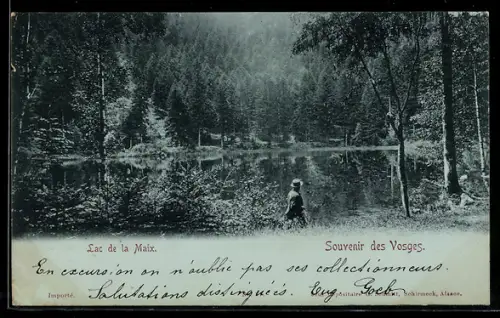 Lac de la Maix.
Souvenir des Vosges.
En excursion on n'oublie pas ses collectionneurs.
Salutations distinguées. Eug
Importé.
Schirmeck, Alsace.